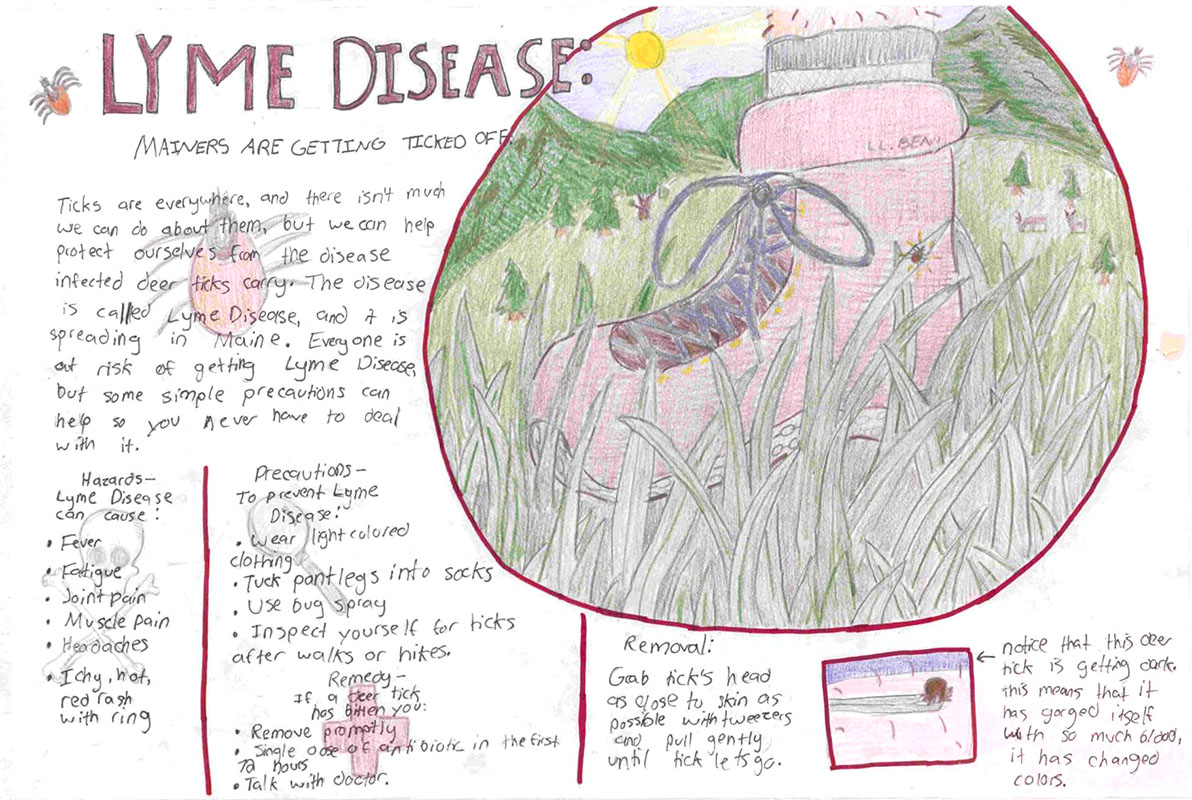 LYME DISEASE:
MAINERS ARE GETTING TICKED OFF.
Ticks are everywhere, and there isn't much
we can do about them, but we can help
protect ourselves from the disease
infected deer ticks carry. The disease
is called Lyme Disease, and it is
spreading in Maine. Everyone is
at risk of getting Lyme Disease,
but some simple precautions can
help so you never have to deal
with it.
L.L. BEAN
Hazards-
Lyme Disease
can cause:
• Fever
• Fatigue
• Joint pain
• Muscle pain
• Headaches
• Itchy, hot,
red rash
with ring
Precautions-
To prevent Lyme
Disease:
• Wear light colored
clothing
• Tuck pant legs into socks
• Use bug spray
• Inspect yourself for ticks
after walks or hikes.
Remedy-
If a deer tick
has bitten you:
• Remove promptly
• Single dose of antibiotic in the first
72 hours
• Talk with doctor.
Removal:
Gab tick's head
as close to skin as
possible with tweezers
and pull gently
until tick lets go.
notice that this deer
tick is getting dark.
this means that it
has gorged itself
with so much blood,
it has changed
colors.